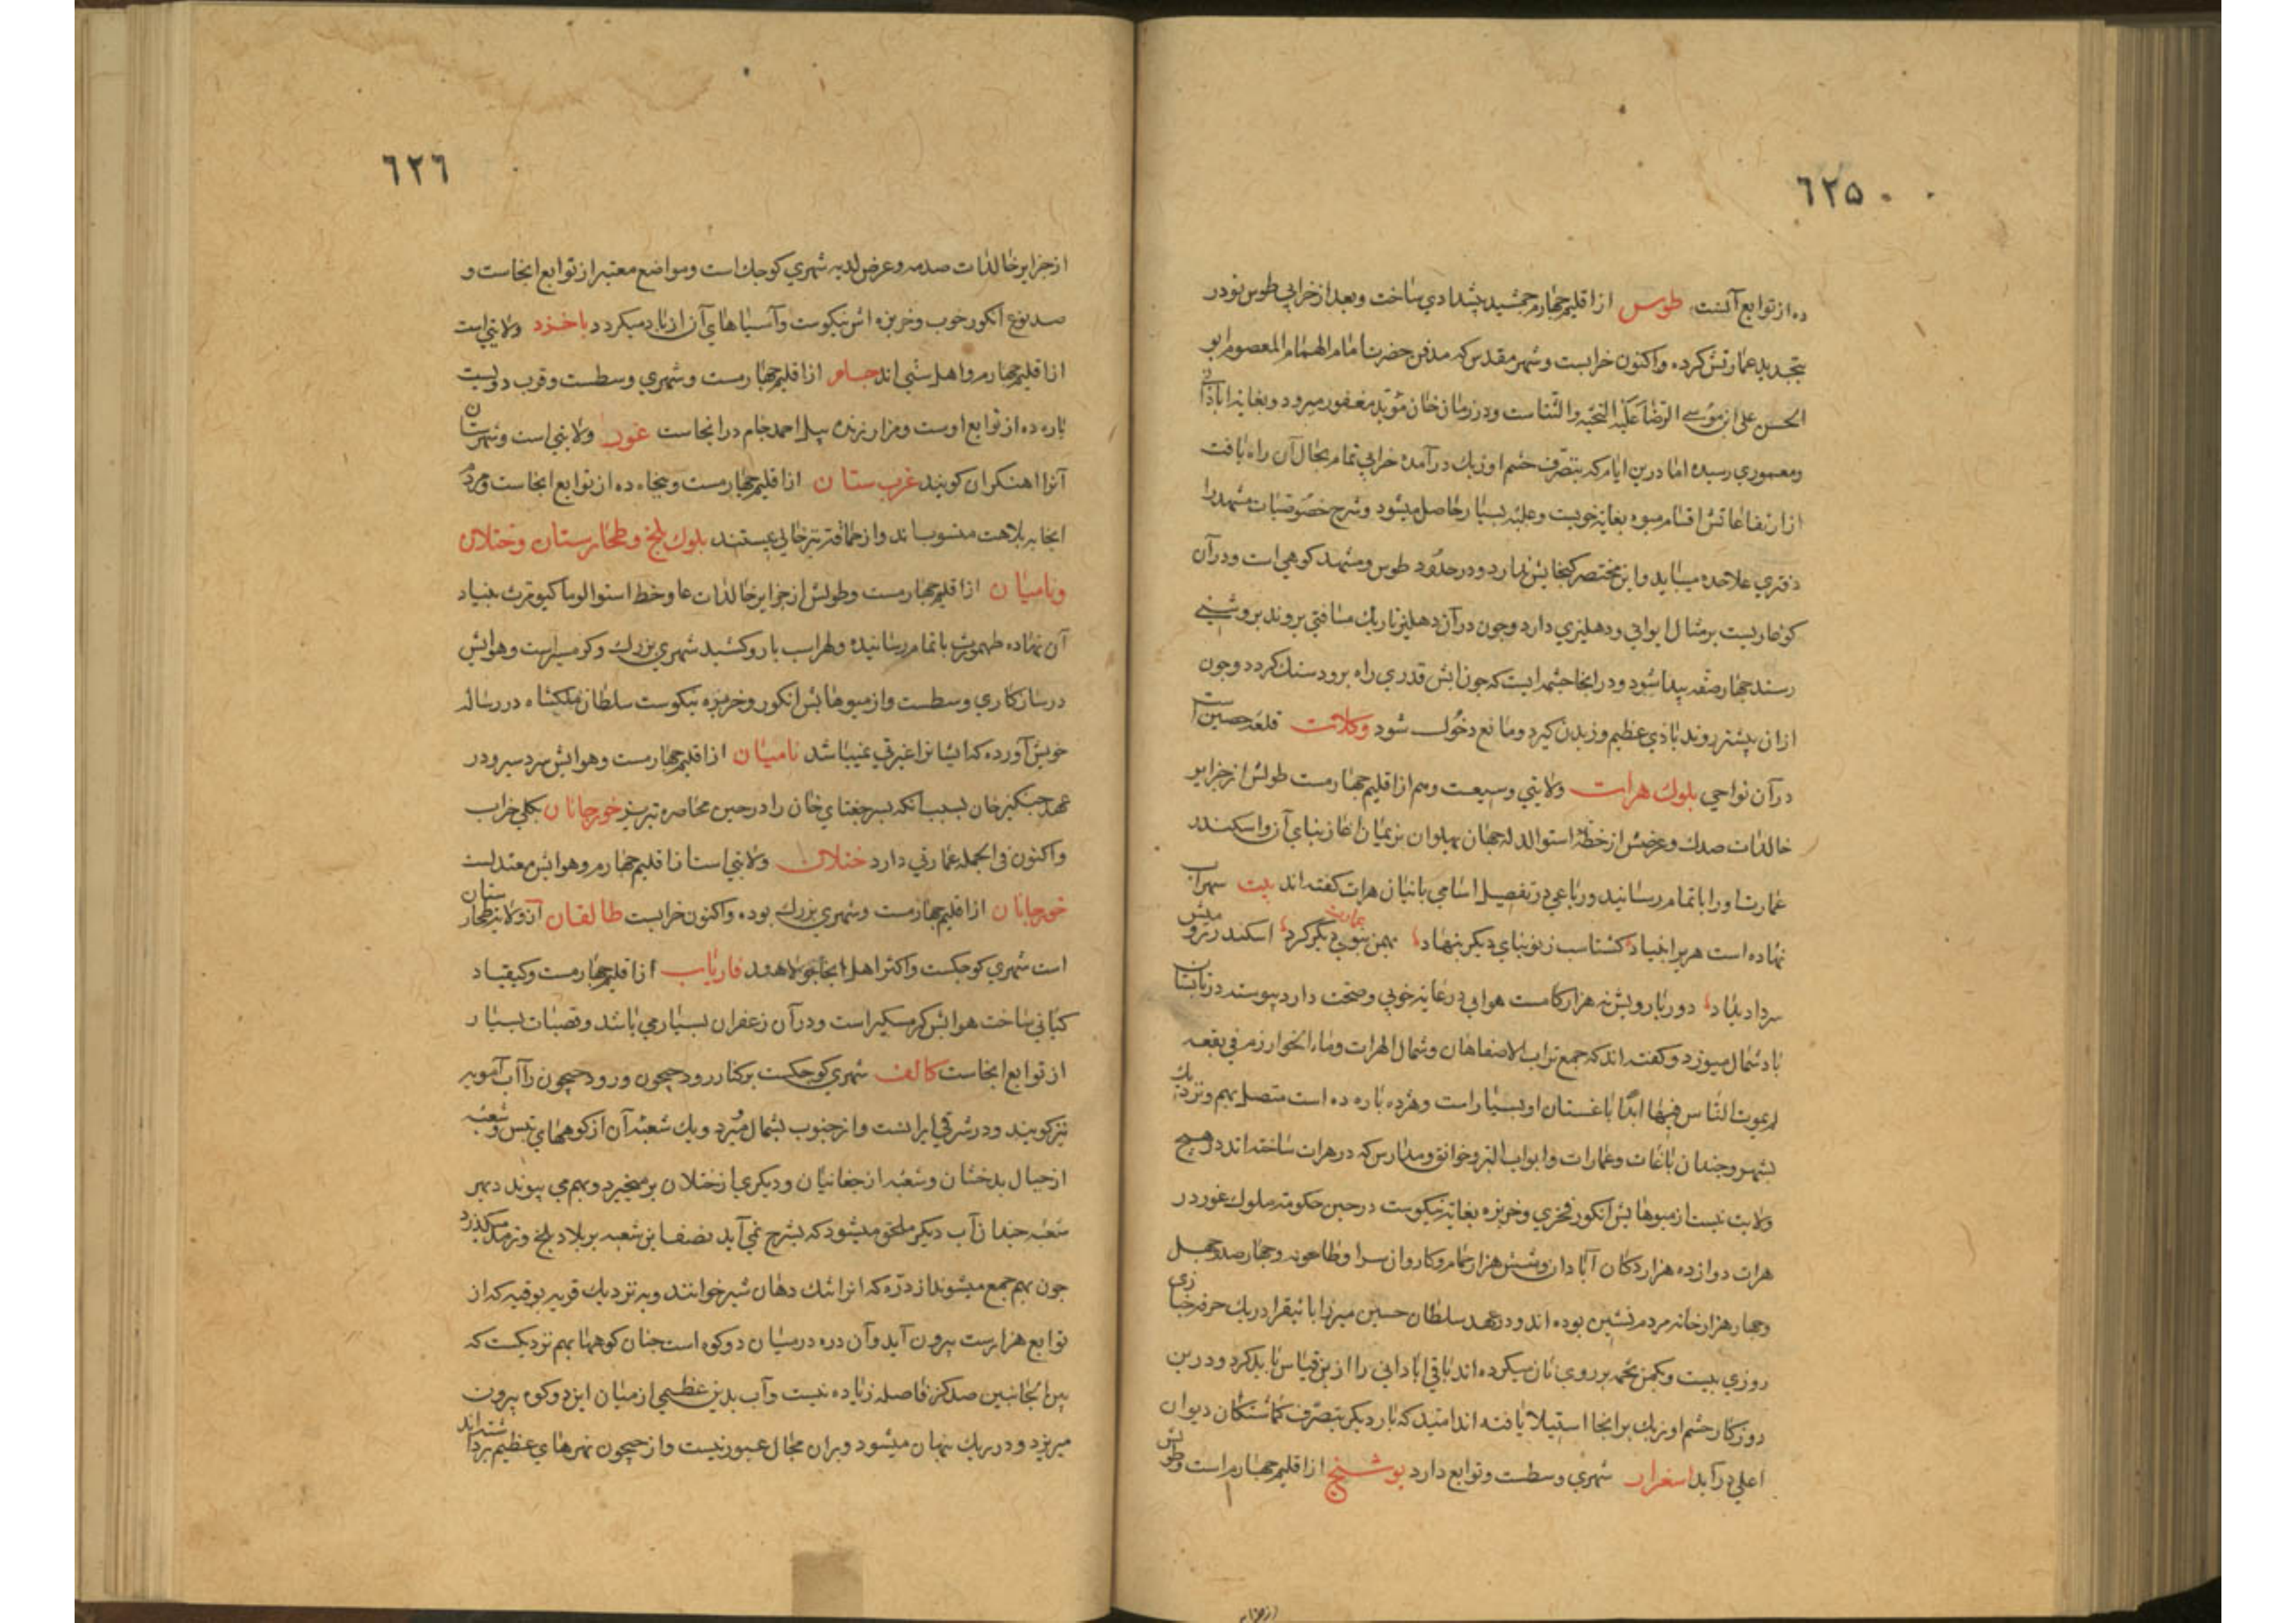 ٦٢۵
ده از توابع آنست طوس از اقلیم چهارم جمشید پیشدادی ساخت و بعد از خرابی طوس نودر
بتجدید عمارتش کرده واکنون خرابست وشهر مقدس که مدفن حضرت امام الهمام المعصوم ابو
الحسن علی ابن موسی الرضا علیه التحیه والثنا است ودر زمان خان مؤید مغفور مبرور بغایة اباذانی
ومعموری رسیده اما درین ایام که بتصرف حشم اوزبك درآمده خرابی تمام بحال آن راه یافت
از ارتفاعاتش اقسام میوه بغایة خوبست وغله بسیار حاصل میشود وشرح خصوصیات مشهد را
دفتری علاحده میباید واین مختصر کنجایش ندارد ودر حدود طوس ومشهد کوهی است ودر آن
کوه غاریست بر مثال ایوانی ودهلیزی دارد وچون در آن دهلیز تاریك مسافتی بروند بروشنی
رسند چهار صفه پیدا شود ودر انجا چشمه ایست که چون آبش قدری راه برود سنك کردد وچون
ازان پیشتر روند باذی عظیم وزیدن کیرد ومانع دخول شود وکلات قلعه حصین است
در آن نواحی بلوك هرات ولایتی وسیعت وهم از اقلیم چهارمست طولش از جزایر
خالدات صدك وعرضش از خط استوا لدله جهان پهلوان نریمان اغاز بنای آن واسکندر
عمارت اورا باتمام رسانید ورباعی در تفصیل اسامی بانیان هرات کفته اند بیت سهراب
نهاده است هری را بنیاد کشتاسب زنو بنای دیکر بنهاد بهمن بنوی دیگر کرد عمارت اسکندر رومیش
سرداد بباد دور بارویش نه هزار کامست هوایی در غایة خوبی وصحت دارد پیوسته در تابستان
باد شمال میوزد وکفته اند که جمع تراب الاصفاهان وشمال الهرات وماء الخوارزم فی بقعه
لم یموت الناس فیها ابدا باغستان او بسیار است وهژده پاره ده است متصل بهم ونزدیك
بشهر وچندان باغات وعمارات وابواب البر وخوانق ومدارس که در هرات ساخته اند در هیچ
ولایت نیست از میوهایش انکور فخری وخربزه بغایة نیکوست در حین حکومة ملوك غور در
هرات دوازده هزار دکان آبادان وشش هزار حمام وکاروان سرا وطاحونه وچهار صد وچهل
وچهار هزار خانه مردم نشین بوده اند ودر عهد سلطان حسین میرزا بایقرا در یك حرفه خبازی
روزی بیست ویکمن تخمه بر روی نان میکرده اند باقی اباذانی را ازین قیاس باید کرد ودرین
روزکار حشم اوزبك بر انجا استیلا یافته اند امید که بار دیکر بتصرف کماشتکان دیوان
اعلی درآید اسفزار شهری وسطست وتوابع دارد بوشنج از اقلیم چهارم است وطولش
٦٢٦
از جزایر خالدات صدمه وعرض لدیه شهری کوچك است ومواضع معتبر از توابع انجاست و
صد نوع انکور خوب وخربزه اش نیکوست وآسیاهای آن از باد میکردد باخزد ولایتی است
از اقلیم چهارم واهل سنی اند جام از اقلیم چهارمست وشهری وسطست وقرب دویست
پاره ده از توابع اوست ومزار زنده پیل احمد جام در انجاست غور ولایتی است وشهرستان
آنرا اهنکران کویند غرب ستان از اقلیم چهارمست وپنجاه ده از توابع انجاست ومردم
انجا ببلاهت منسوب اند واز حماقة نیز خالی نیستند بلوك بلخ وطخارستان وختلان
وبامیان از اقلیم چهارمست وطولش از جزایر خالدات عا وخط استوا لوما کیومرث بنیاد
آن نهاده طهمورث باتمام رسانیده ولهراسب بارو کشید شهری بزرك وکرمسیرست وهوایش
درسازکاری وسطست واز میوهایش انکور وخربزه نیکوست سلطان ملکشاه در رساله
خویش آورده که ایشانرا غیرتی نمیباشد بامیان از اقلیم چهارمست وهوایش سردسیر ودر
عهد چنکیز خان بسبب انکه پسر چغتای خان را در حین محاصره تیر زدند خورجانان بکلی خراب
واکنون فی الجمله عمارتی دارد ختلان ولایتی است از اقلیم چهارم وهوایش معتدلست
خورجانان از اقلیم چهارمست وشهری بزرك بوده واکنون خرابست طالقان از ولایة طخارستان
است شهری کوچکست واکثر اهل انجا جولاهند فاریاب از اقلیم چهارمست وکیقباد
کیانی ساخت هوایش کرمسیر است ودر آن زعفران بسیار می باشد وقصبات بسیار
از توابع انجاست کالف شهری کوچکست بر کنار رود جیحون ورود جیحون را آب آمویه
نیز کویند ودر شرقی ایرانست واز جنوب بشمال میرود ویك شعبه آن از کوههای تبس وشعبه
از جبال بدخشان وشعبه از چغانیان ودیکری از ختلان برمیخیزد وبهم می پیوند دبهر
شعبه چندان آب دیکر ملحق میشود که بشرح نمی آید نصف این شعبه بر بلاد بلخ وترمد میکذرد
چون بهم جمع میشوند از دره که انرا تنك دهان شیر خوانند وبه نزدیك قریه بوقیه که از
توابع هزارست بیرون آید وآن دره در میان دو کوه است چنان کوهها بهم نزدیکست که
بین الجانبین صد کز فاصله زیاده نیست وآب بدین عظیمی از میان این دو کوه بیرون
میریزد ودر ریك پنهان میشود وبران مجال عبور نیست واز جیحون نهرهای عظیم برداشته اند